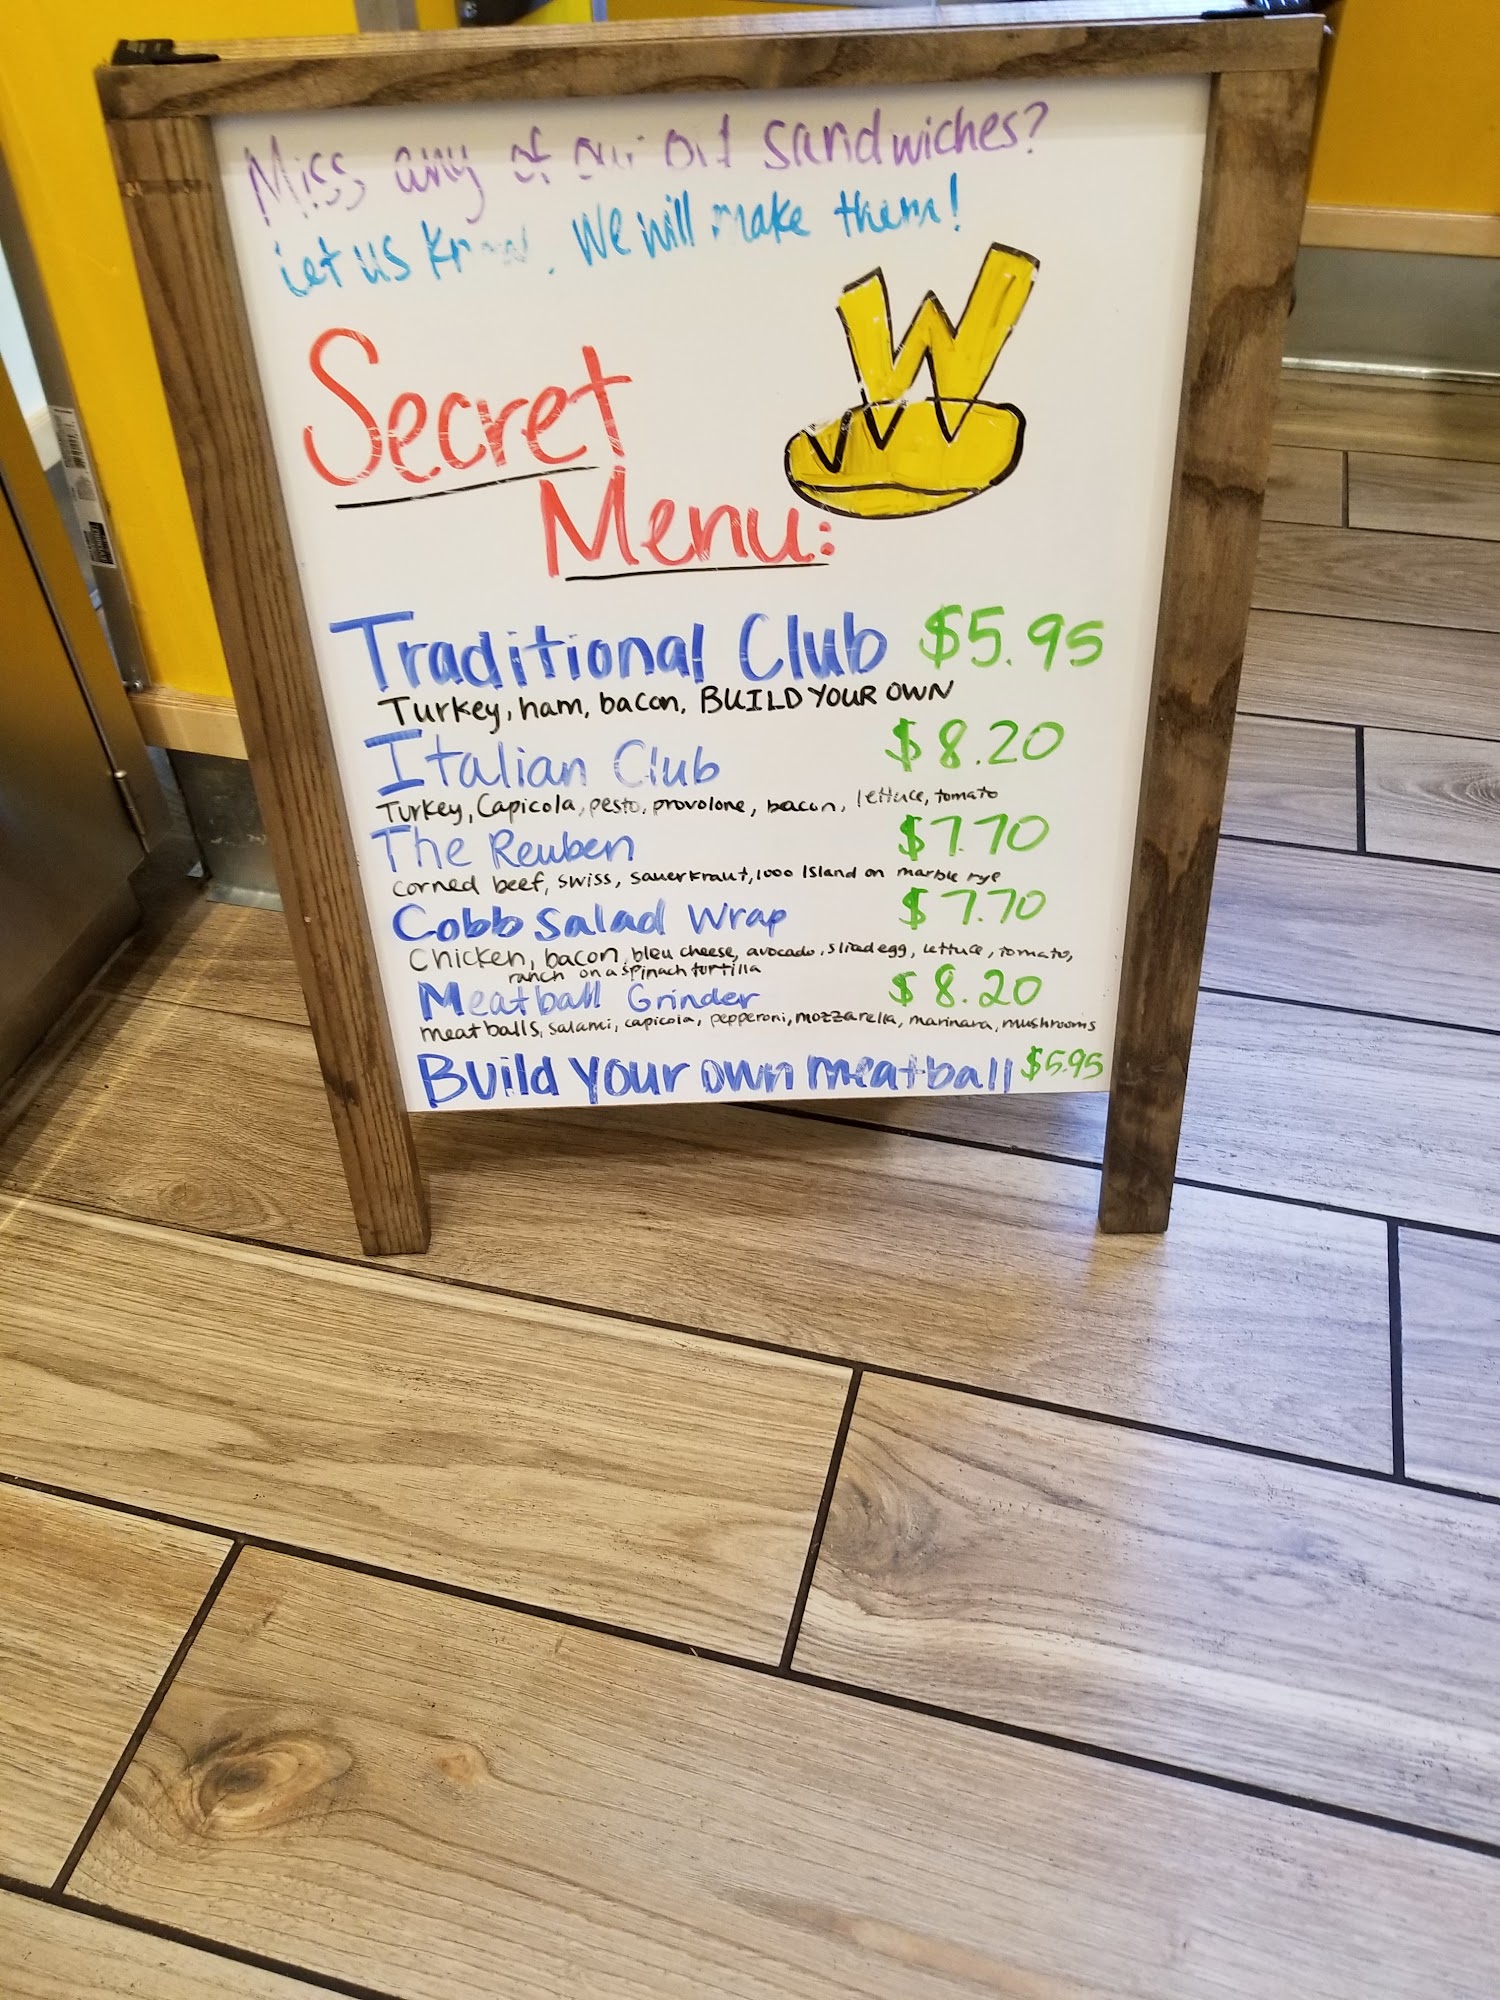 Miss any of our old sandwiches?
Let us know. We will make them!
W
Secret
Menu:
Traditional Club $5.95
Turkey, ham, bacon, BUILD YOUR OWN
Italian Club $8.20
Turkey, Capicola, pesto, provolone, bacon, lettuce, tomato
The Reuben $7.70
corned beef, swiss, sauerkraut, 1000 Island on marble rye
Cobb Salad Wrap $7.70
Chicken, bacon, bleu cheese, avocado, sliced egg, lettuce, tomato,
ranch on a spinach tortilla
Meatball Grinder $8.20
meatballs, salami, capicola, pepperoni, mozzarella, marinara, mushrooms
Build your own meatball $5.95